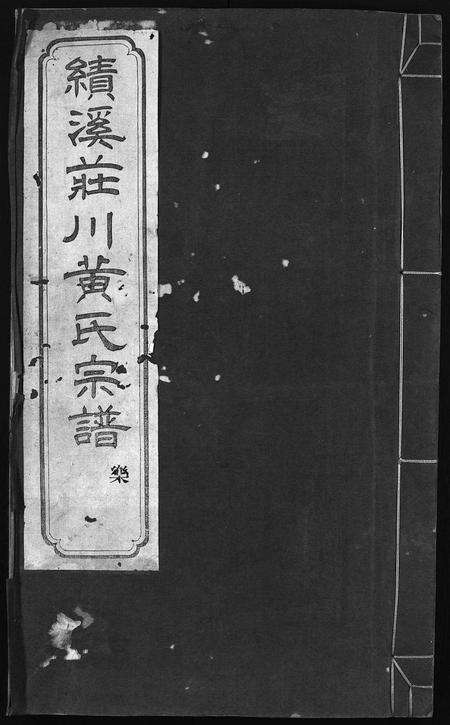 績溪莊川黃氏宗譜
樂